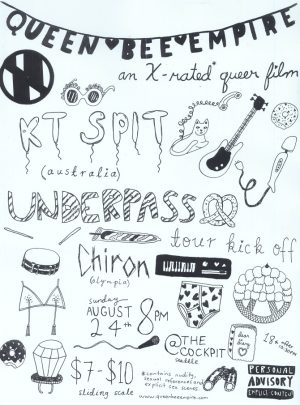 QUEEN ♥ BEE ♥ EMPIRE
an X-rated* queer film
KT SPIT
(australia)
UNDERPASS
tour kick off
Chiron
(olympia)
sunday
AUGUST
24th 8PM
@THE
COCKPIT
seattle
dear
diary
$7-$10
sliding scale
*contains nudity,
sexual references and
explicit sex scenes
www.queenbeeempire.com
PERSONAL
ADVISORY
EXPLICIT CONTENT